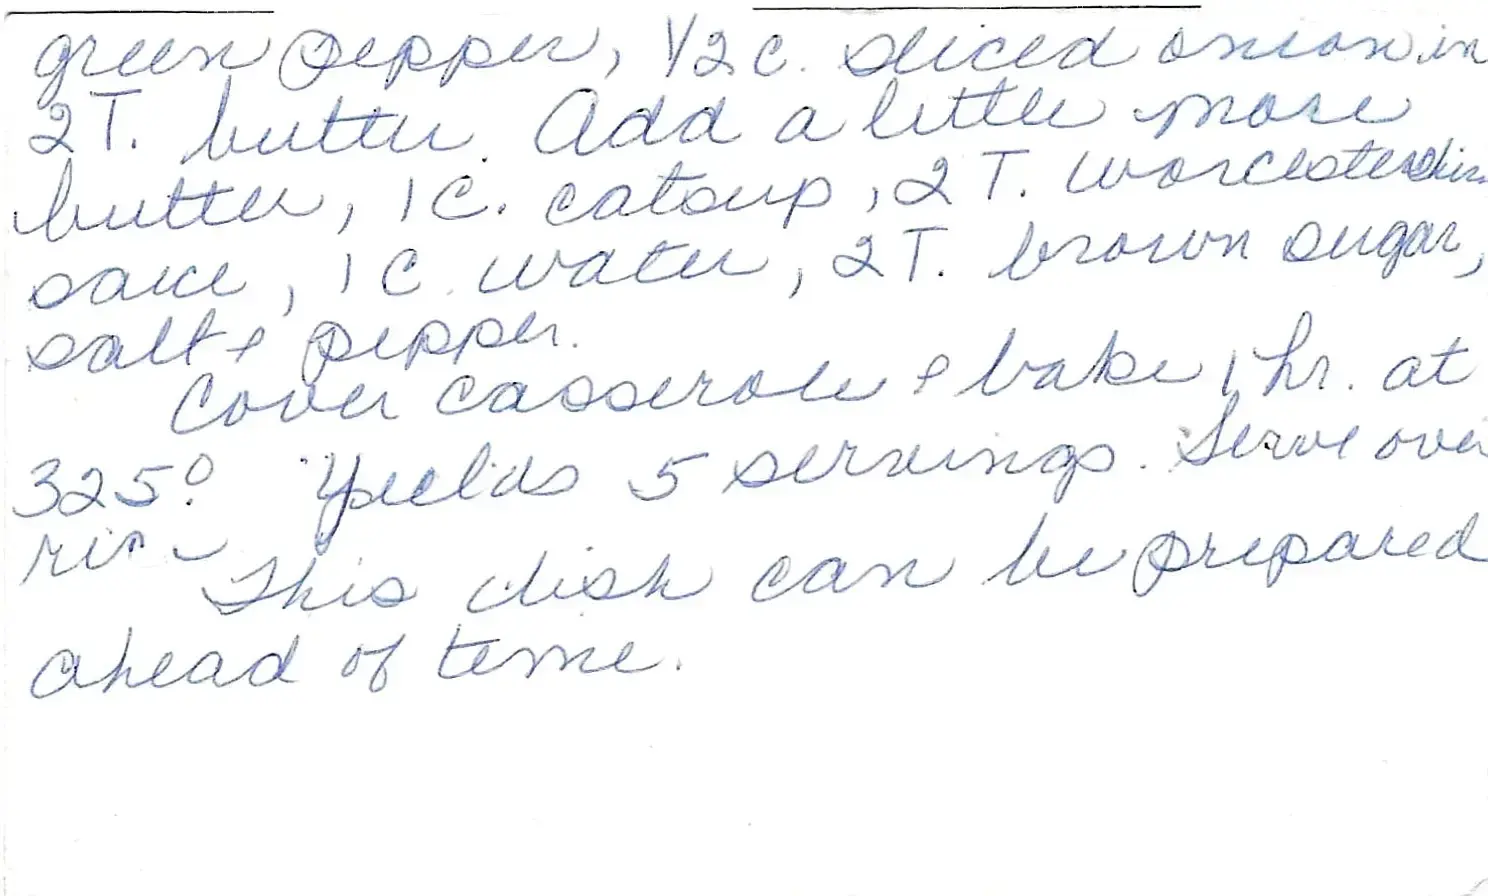 green pepper, 1/2 c. sliced onion in
2 T. butter. Add a little more
butter, 1 C. catsup, 2 T. worcestershire
sauce, 1 C. water, 2 T. brown sugar,
salt & pepper.
Cover casserole & bake 1 hr. at
325°. Yields 5 servings. Serve over
rice
This dish can be prepared
ahead of time.